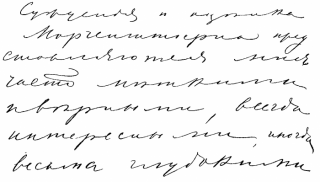 Суждения и
Моргенштерна пред
ставляются мне
часто меткими
и верными, всегда
интересными, иногда
весьма глубокими